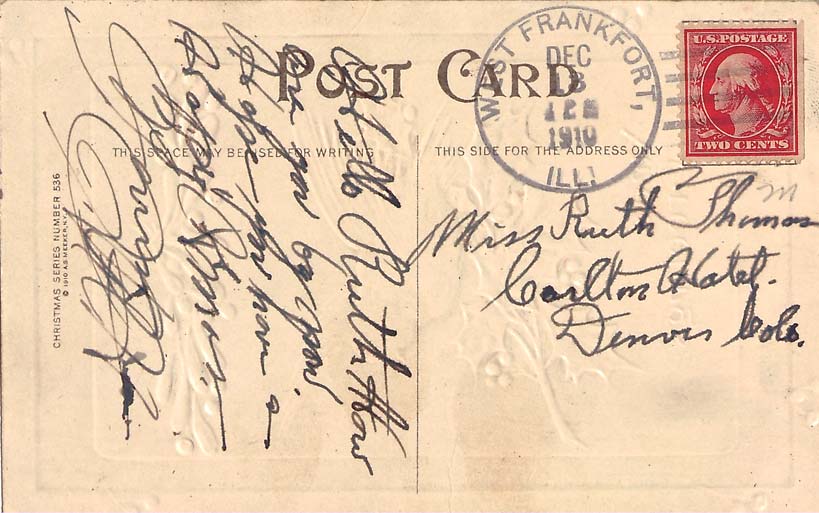 POST CARD
THIS SPACE MAY BE USED FOR WRITING
THIS SIDE FOR THE ADDRESS ONLY
WEST FRANKFORT,
DEC
1910
ILL.
U.S. POSTAGE
TWO CENTS
Miss Ruth Thomas
Carlton Hotel.
Denver Colo.
Hello Ruth How
are you by now.
Hope you have a
CHRISTMAS SERIES NUMBER 536
© 1910 A.S. MEEKER, N.Y.